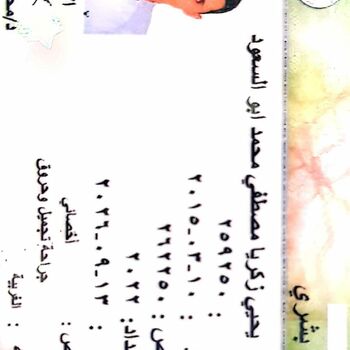 بشري
يحيي زكريا مصطفي محمد ابو السعود
: ٢٥٩٢٥٠
: ٢٠١٥-٠٣-١٠
ص : ٢٦٢٢٥٠
داد: ٢٠٢٢
ص : ٢٠٢٦-٠٩-١٣
أخصائي
جراحة تجميل وحروق
: الغربية